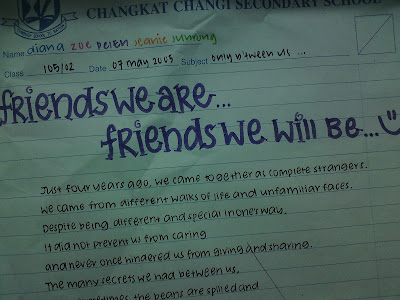 CHANGKAT CHANGI SECONDARY SCHOOL
Name diana zoe peien jeanie junrong
Class 105/02 Date 07 may 2003 Subject only between us ...
friends we are...
friends we will be...
Just four years ago, we came together as complete strangers.
We came from different walks of life and unfamiliar faces.
Despite being different and special in one's way,
It did not prevent us from caring
and never once hindered us from giving and sharing.
The many secrets we had between us,
sometimes the beans are spilled and